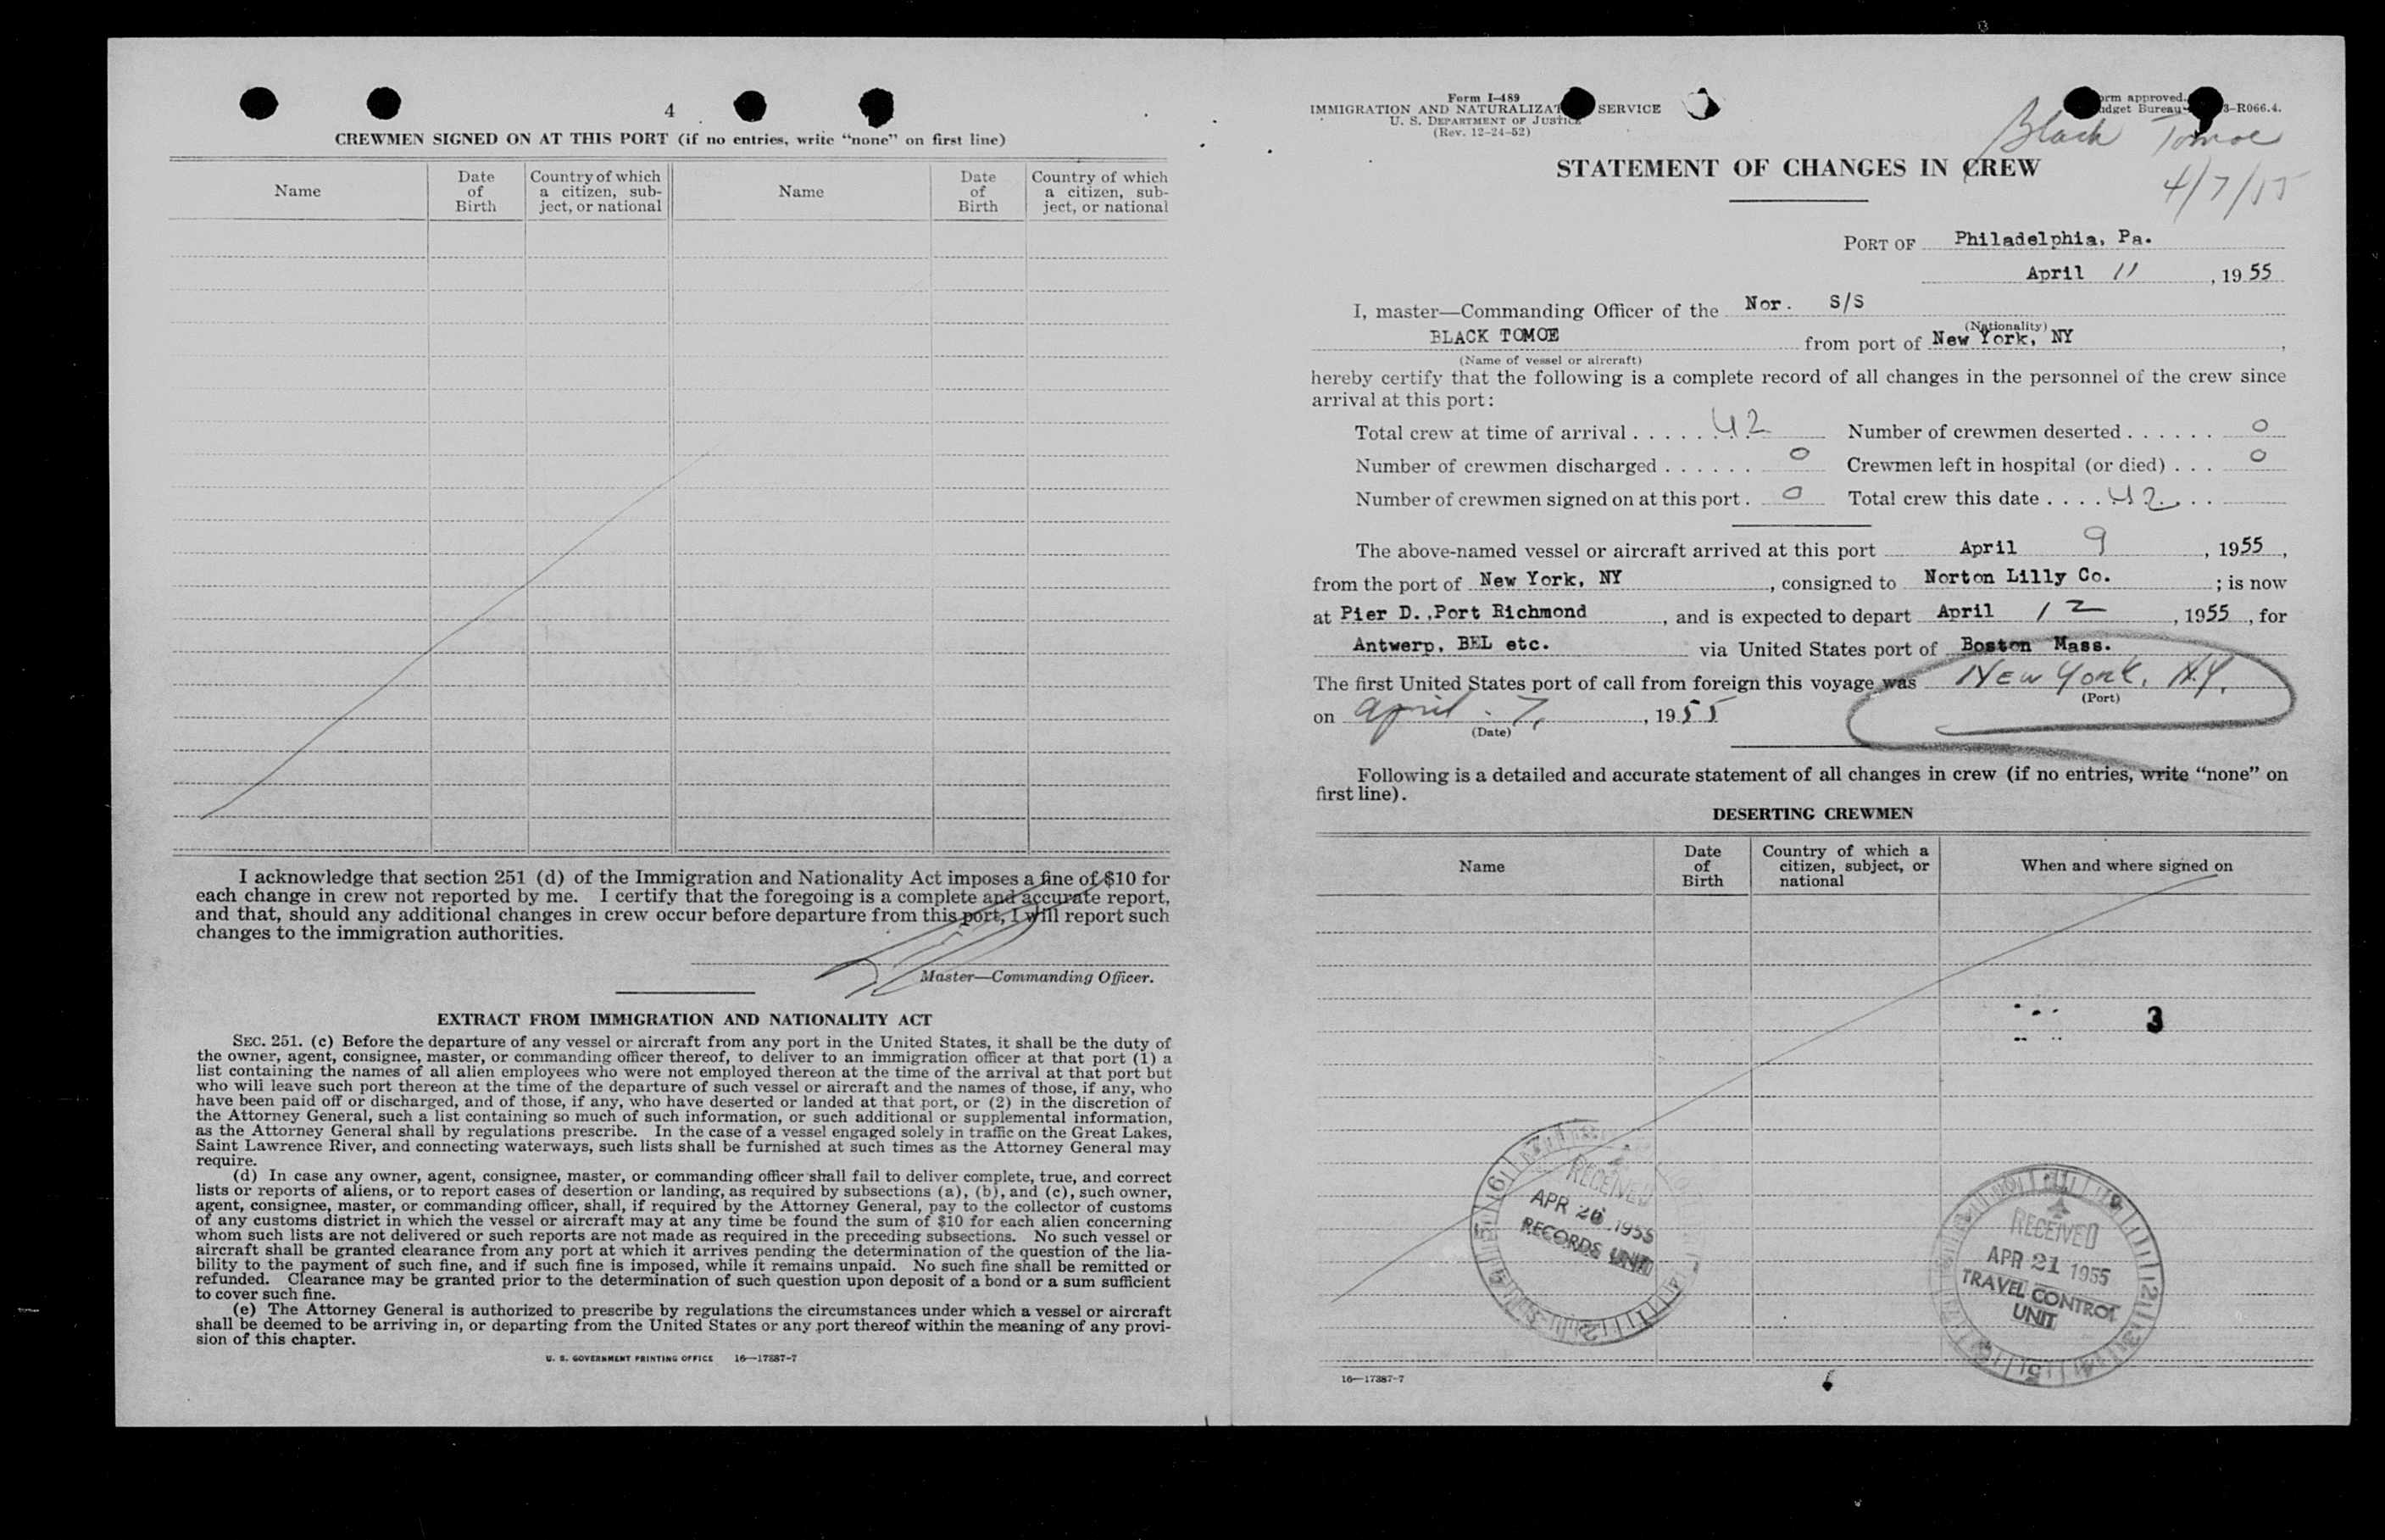 4
CREWMEN SIGNED ON AT THIS PORT (if no entries, write “none” on first line)
Name
Date of Birth
Country of which a citizen, sub-ject, or national
Name
Date of Birth
Country of which a citizen, sub-ject, or national
I acknowledge that section 251 (d) of the Immigration and Nationality Act imposes a fine of $10 for
each change in crew not reported by me. I certify that the foregoing is a complete and accurate report,
and that, should any additional changes in crew occur before departure from this port, I will report such
changes to the immigration authorities.
Master—Commanding Officer.
EXTRACT FROM IMMIGRATION AND NATIONALITY ACT
SEC. 251. (c) Before the departure of any vessel or aircraft from any port in the United States, it shall be the duty of
the owner, agent, consignee, master, or commanding officer thereof, to deliver to an immigration officer at that port (1) a
list containing the names of all alien employees who were not employed thereon at the time of the arrival at that port but
who will leave such port thereon at the time of the departure of such vessel or aircraft and the names of those, if any, who
have been paid off or discharged, and of those, if any, who have deserted or landed at that port, or (2) in the discretion of
the Attorney General, such a list containing so much of such information, or such additional or supplemental information,
as the Attorney General shall by regulations prescribe. In the case of a vessel engaged solely in traffic on the Great Lakes,
Saint Lawrence River, and connecting waterways, such lists shall be furnished at such times as the Attorney General may
require.
(d) In case any owner, agent, consignee, master, or commanding officer shall fail to deliver complete, true, and correct
lists or reports of aliens, or to report cases of desertion or landing, as required by subsections (a), (b), and (c), such owner,
agent, consignee, master, or commanding officer, shall, if required by the Attorney General, pay to the collector of customs
of any customs district in which the vessel or aircraft may at any time be found the sum of $10 for each alien concerning
whom such lists are not delivered or such reports are not made as required in the preceding subsections. No such vessel or
aircraft shall be granted clearance from any port at which it arrives pending the determination of the question of the lia-
bility to the payment of such fine, and if such fine is imposed, while it remains unpaid. No such fine shall be remitted or
refunded. Clearance may be granted prior to the determination of such question upon deposit of a bond or a sum sufficient
to cover such fine.
(e) The Attorney General is authorized to prescribe by regulations the circumstances under which a vessel or aircraft
shall be deemed to be arriving in, or departing from the United States or any port thereof within the meaning of any provi-
sion of this chapter.
U. S. GOVERNMENT PRINTING OFFICE 16—17887-7
Form I-489
IMMIGRATION AND NATURALIZAT SERVICE
U. S. DEPARTMENT OF JUSTICE
(Rev. 12-24-52)
orm approved.
udget Bureau 3-R066.4.
Black Tomoe
4/7/55
STATEMENT OF CHANGES IN CREW
PORT OF Philadelphia, Pa.
April 11, 1955
I, master—Commanding Officer of the Nor. S/S
(Nationality)
BLACK TOMOE from port of New York, NY,
(Name of vessel or aircraft)
hereby certify that the following is a complete record of all changes in the personnel of the crew since
arrival at this port:
Total crew at time of arrival . . . . . . . 42 Number of crewmen deserted . . . . . . 0
Number of crewmen discharged . . . . . . 0 Crewmen left in hospital (or died) . . . 0
Number of crewmen signed on at this port . 0 Total crew this date . . . . 42 . .
The above-named vessel or aircraft arrived at this port April 9, 1955,
from the port of New York, NY, consigned to Norton Lilly Co.; is now
at Pier D.,Port Richmond, and is expected to depart April 12, 1955, for
Antwerp, BEL etc. via United States port of Boston Mass.
The first United States port of call from foreign this voyage was New York, N.Y.
(Port)
on April 7, 1955
(Date)
Following is a detailed and accurate statement of all changes in crew (if no entries, write “none” on
first line).
DESERTING CREWMEN
Name
Date of Birth
Country of which a citizen, subject, or national
When and where signed on
3
RECEIVED
APR 26 1955
RECORDS UNIT
RECEIVED
APR 21 1955
TRAVEL CONTROL
UNIT
16—17887-7